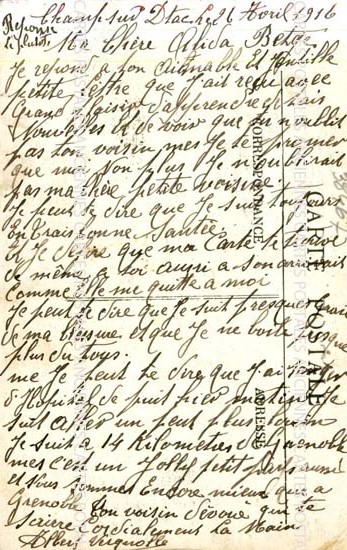 Champ sur Drac le 26 Avril 1916
Reponse
si plutot
Ma Chère Alida Betge
Je repond a ton aimable et Gentille
petite lettre que J'ai reçu avec
Grand plaisir d'apprendre et tais
Nouvelles et de voir que tu noublit
pas ton voisin mes Je te promer
que moi Non plus Je n'oublirait
pas ma chère petite voisine
Je peut te dire que Je suit toujours
en brais bonne santée
et Je desire que ma Carte te trouve
de même a toi aussi a son arrivait
Comme elle me quitte a moi
Je peut te dire que Je suit presque
de ma blessure et que Je ne boite presque
plus du tous.
me Je peut te dire que J'ai changer
d'Hopital de puit hier matin Je
suit aller un peut plus loin
Je suit a 14 Kilometres de Grenoble
mes c'est un Jolly petit pays aussi
et nous sommes Encore mieux qu a
Grenoble ton voisin dévoué qui te
serere Cordialement la Main
Albert
CARTE POSTALE
CORRESPONDANCE
ADRESSE